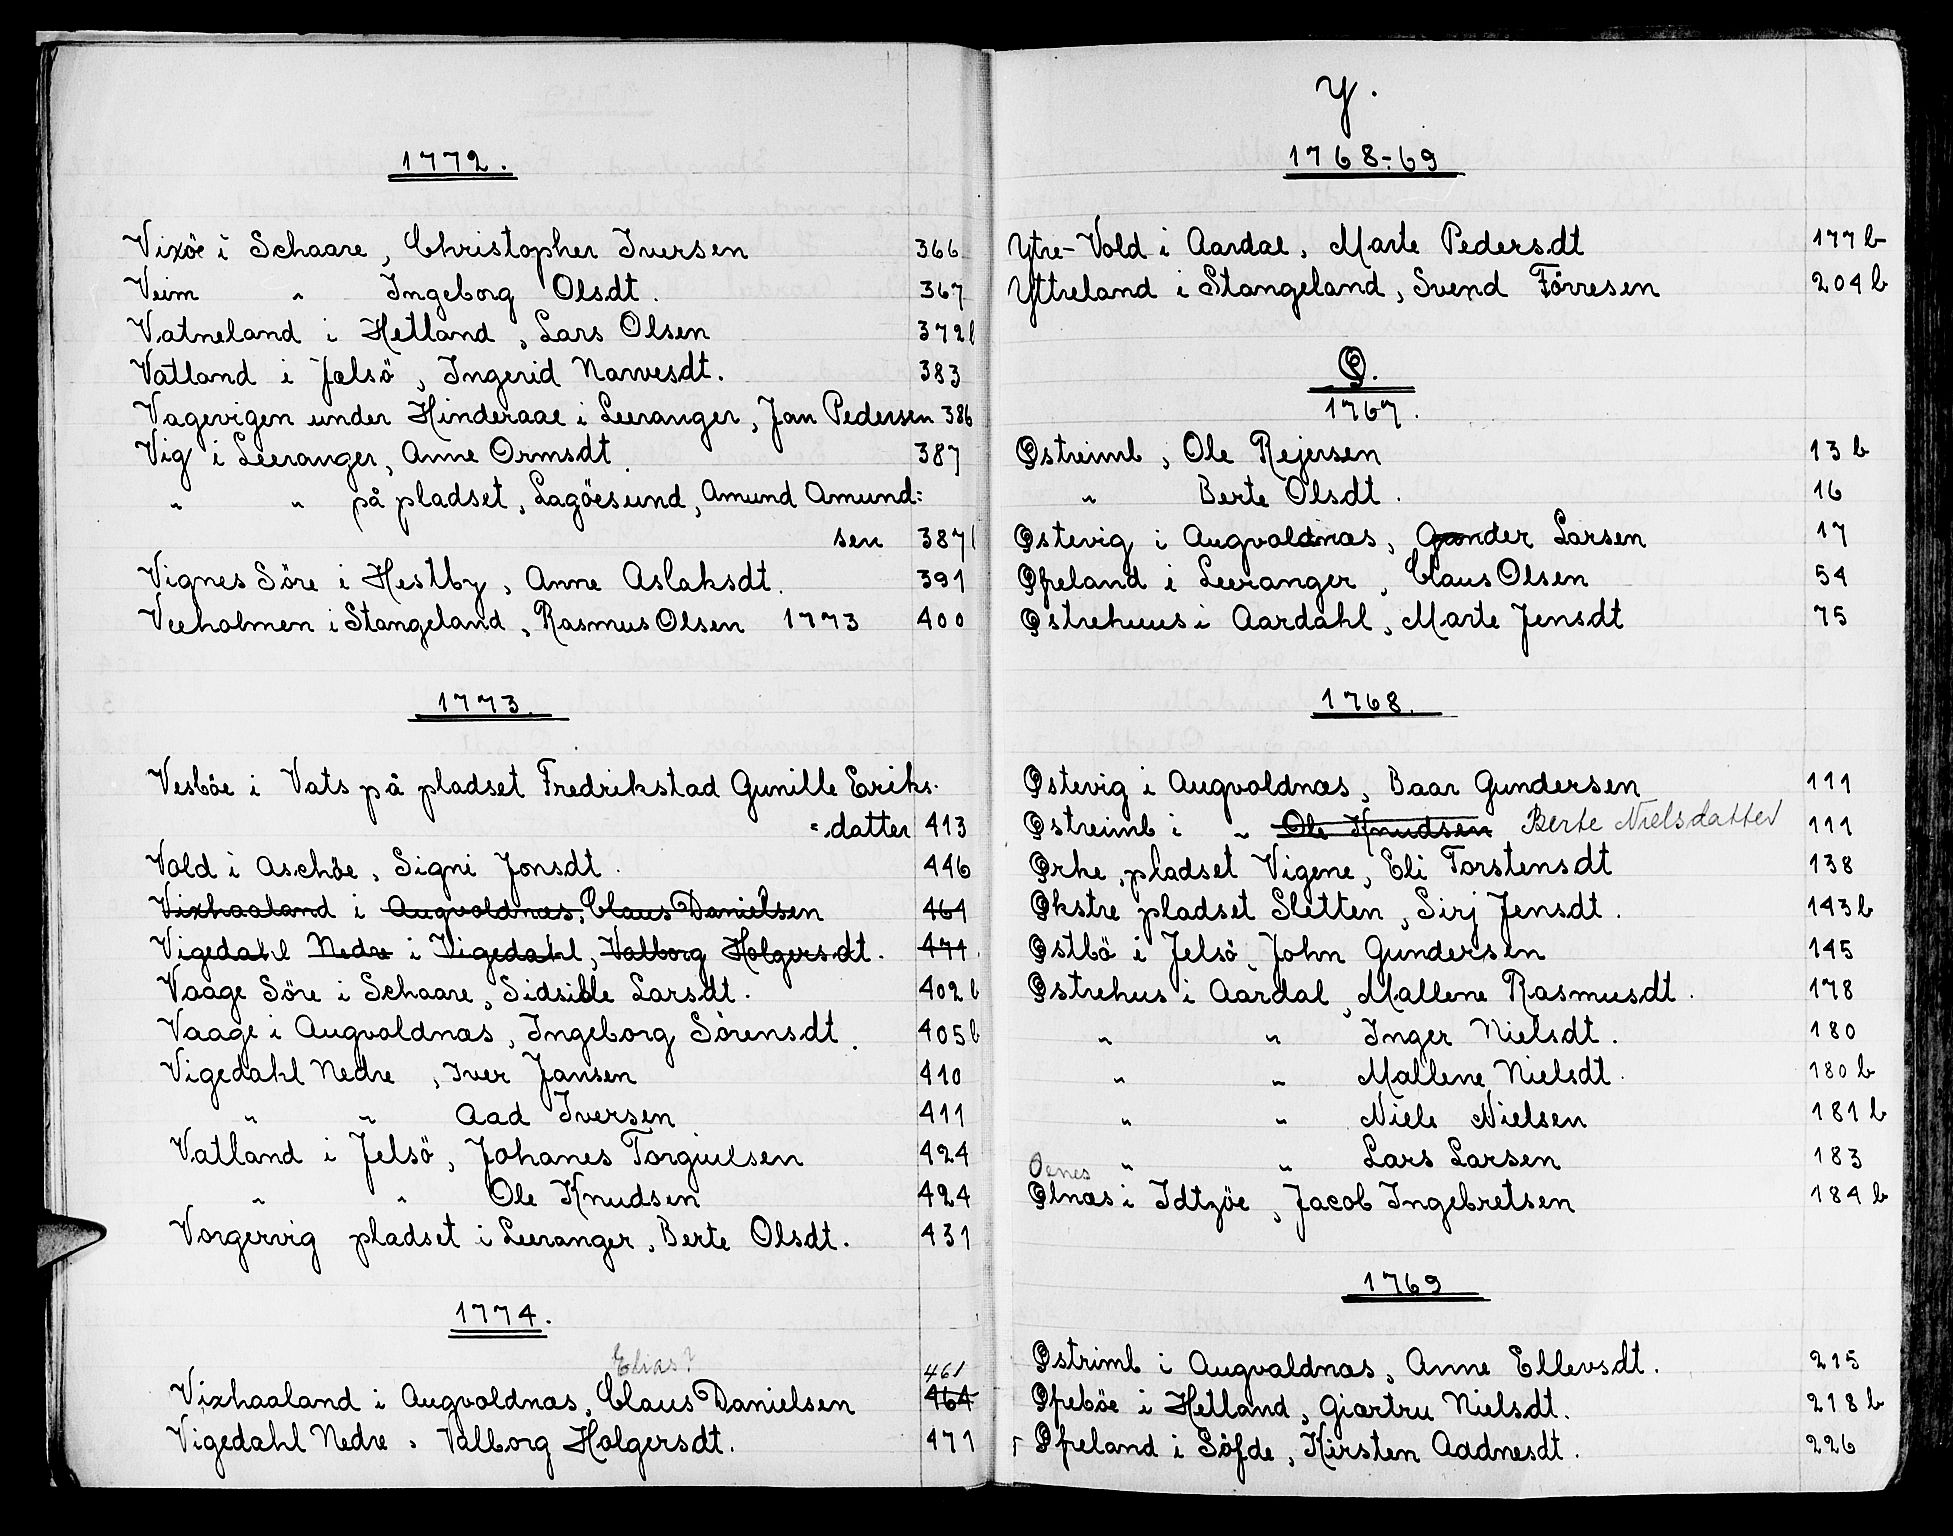 1772.
Vixöe i Schaare, Christopher Iversen 366
Veim " Ingeborg Olsdt. 367
Vatneland i Hetland, Lars Olsen 372b
Vatland i Jælsö, Ingerid Narvesdt. 383
Vagevigen under Hinderaae i Leeranger, Jan Pedersen 386
Vig i Leeranger, Anne Ormsdt. 387
" " på pladset, Lagöesund, Amund Amund:
sen 387b
Vignes Söre i Hestby, Anne Aslaksdt. 391
Veeholmen i Stangeland, Rasmus Olsen 1773 400
1773.
Vesböe i Vats på pladset Fredrikstad Gunille Eriks-
=datter 413
Vold i Aschöe, Signi Jonsdt. 446
Vixhaaland i Augvoldnæs, Claus Danielsen 464
Vigedahl Nedre i Vigedahl, Valborg Holgersdt. 471
Vaage Söre i Schaare, Sidsible Larsdt. 402b
Vaage i Augvoldnæs, Ingeborg Sörensdt. 405b
Vigedahl Nedre, Iver Jansen 410
" " Aad Iversen 411
Vatland i Jelsö, Johanes Torgiulsen 424
" " Ole Knudsen 424
Vorgervig pladset i Leeranger, Berte Olsdt. 431
1774.
Elias? 461
Vixhaaland i Augvoldnæs, Claus Danielsen 464
Vigedahl Nedre, Valborg Holgersdt. 471
Y.
1768-69
Ytre-Vold i Aardal, Marte Pedersdt 177b
Yttreland i Stangeland, Svend Förresen 204b
Ø.
1767.
Østreimb, Ole Rejersen 13b
" Berte Olsdt. 16
Østevig i Augvaldnæs, Gunder Larsen 17
Øfreland i Leeranger, Claus Olsen 54
Østrehuus i Aardahl, Marte Jensdt 75
1768.
Østevig i Augvoldnæs, Baar Gundersen 111
Østreimb i " Ole Knudsen Berte Nielsdatter 111
Ørke, pladset Vigene, Eli Torstensdt 138
Økstre pladset Sletten, Sirj Jensdt. 143b
Østbö i Jelsö, John Gundersen 145
Østrehus i Aardal, Mallene Rasmusdt. 178
" " Inger Nielsdt. 180
" " Mallene Nielsdt. 180b
" " Niels Nielsen 181b
" " Lars Larsen 183
Øenes
Ølnæs i Idtzöe, Jacob Ingebretsen 184b
1769
Østrimb i Augvaldnæs, Anne Ellevsdt. 215
Øfreböe i Hetland, Giærtru Nielsdt. 218b
Øfreland i Söfde, Kirsten Aadnesdt. 226